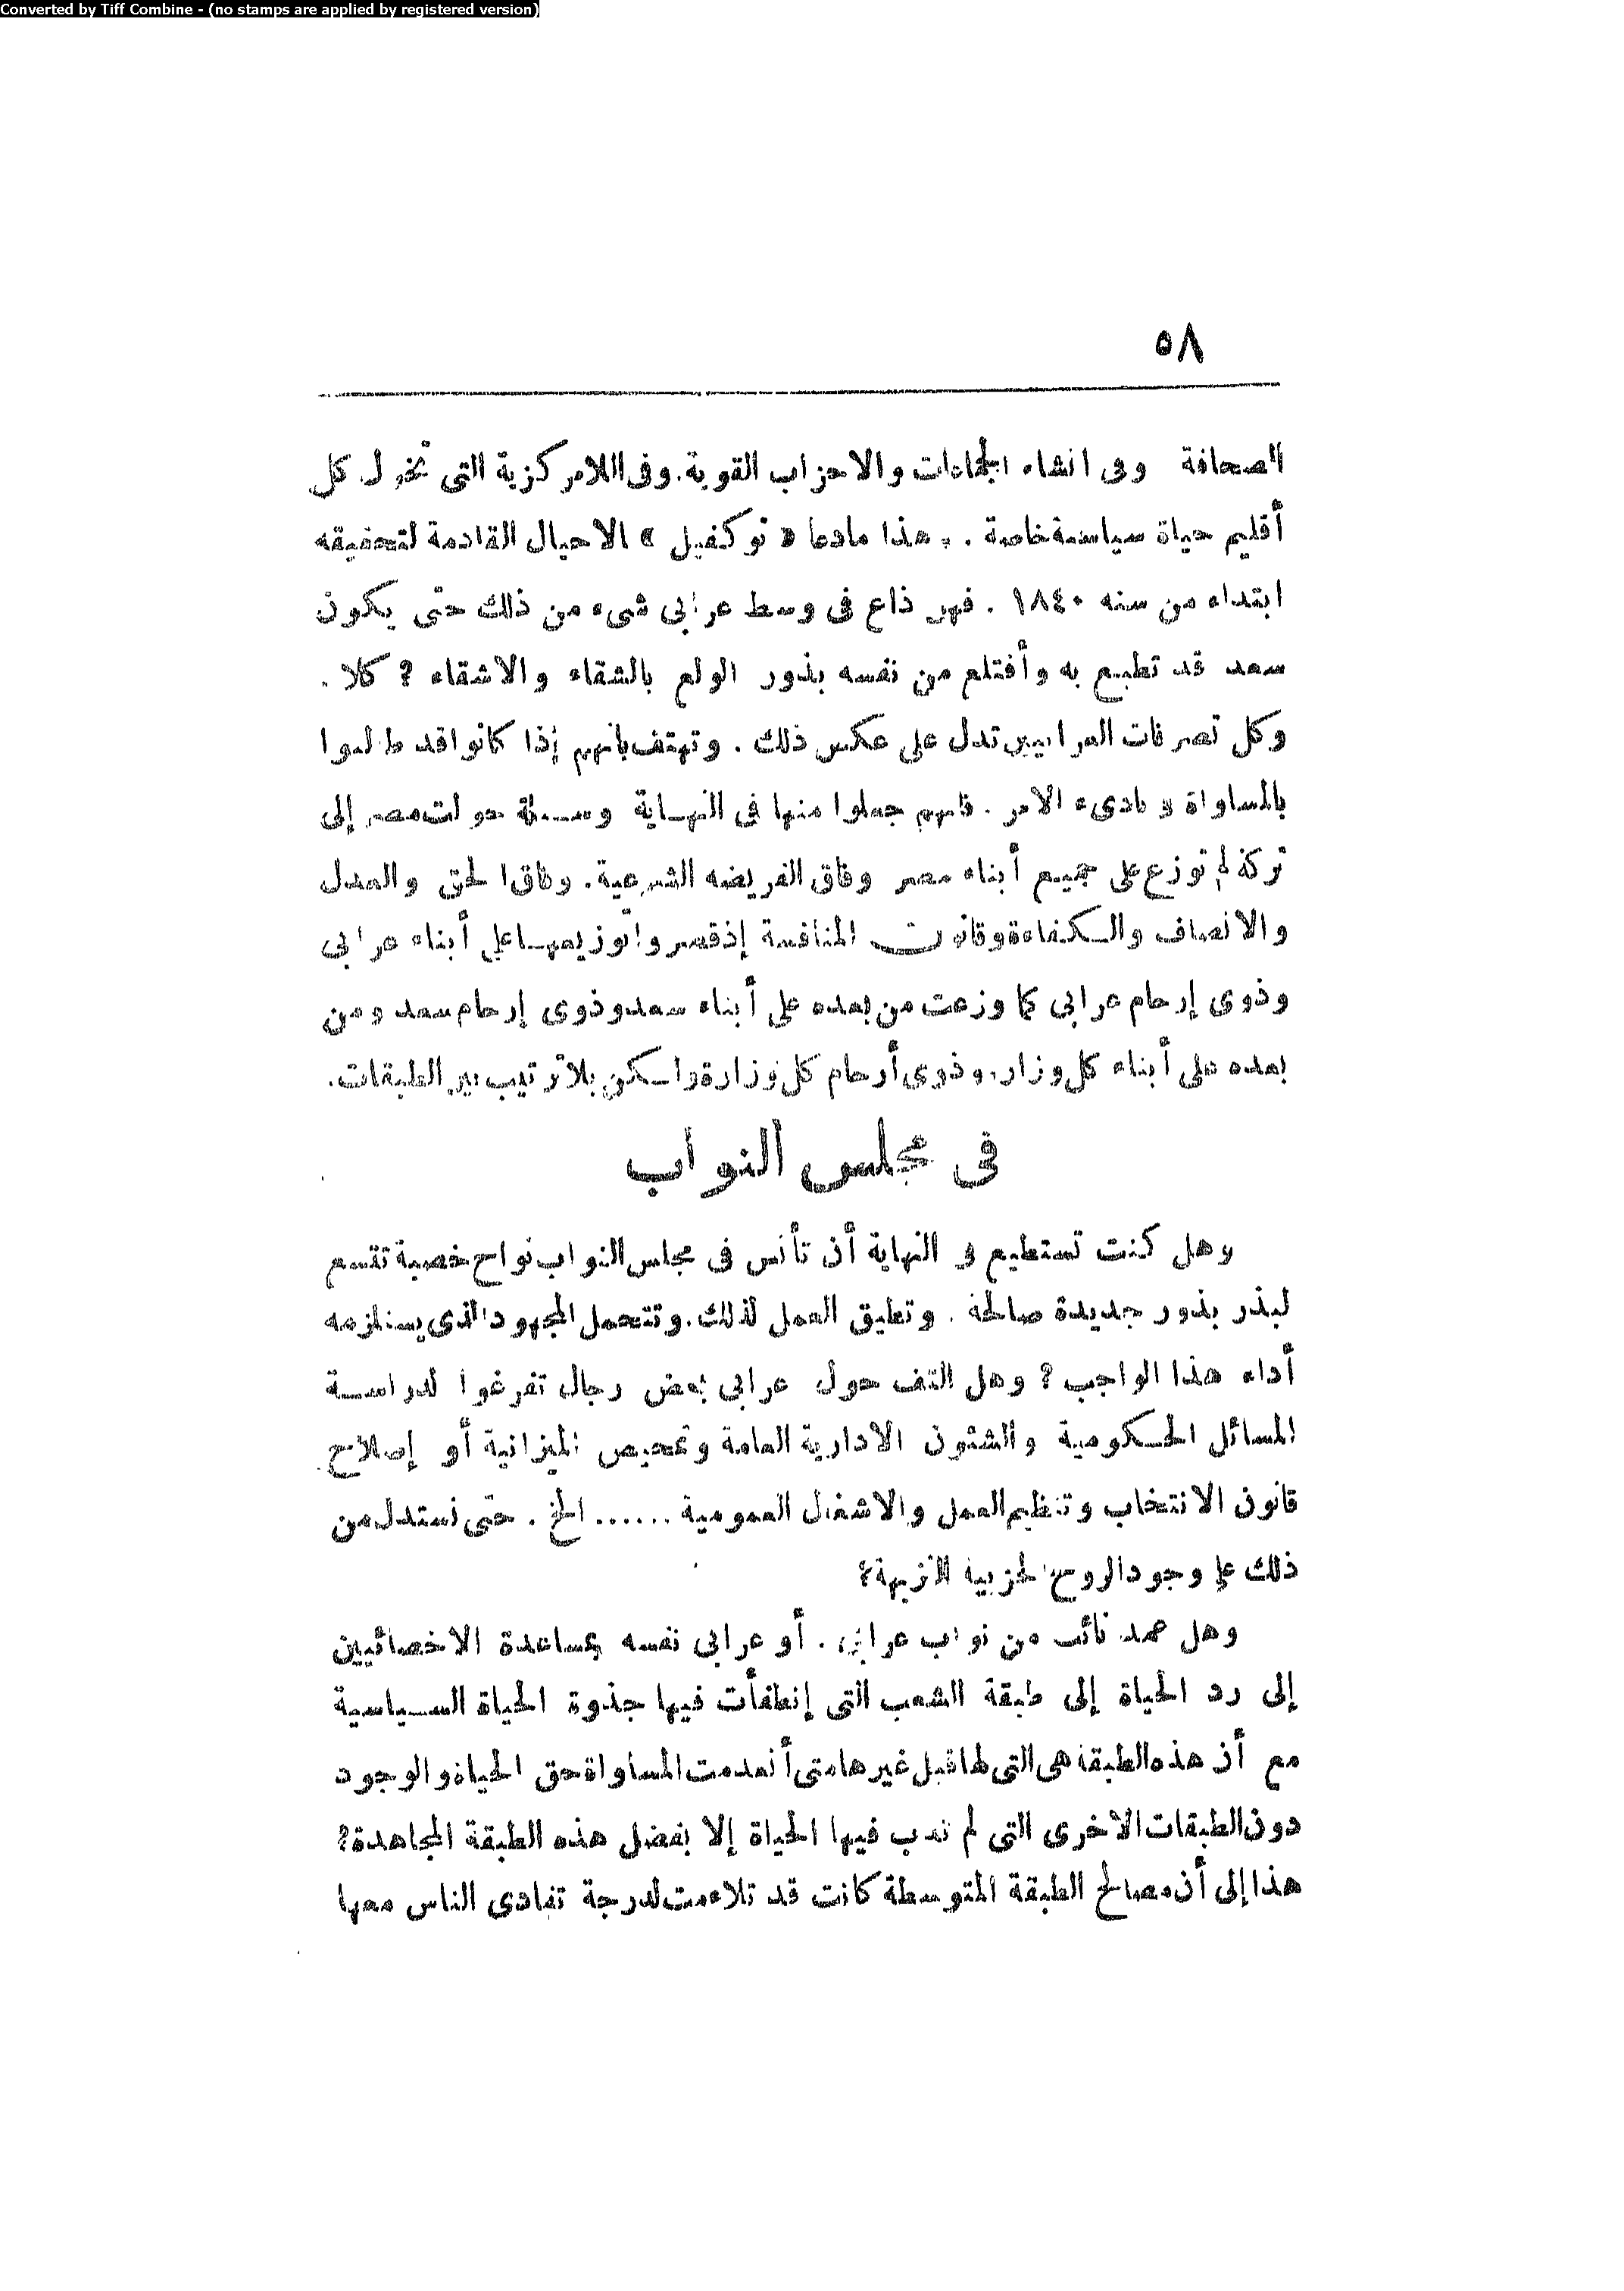 Converted by Tiff Combine - (no stamps are applied by registered version)
٥٨
الصحافة وفى انشاء الجماعات والاحزاب القوية. وفى اللامركزية التى تخول كل
أقليم حياة سياسية خاصة . هذا مادعا « توكفيل » الاجيال القادمة لتحقيقه
ابتداء من سنه ١٨٤٠ . فهل ذاع فى وسط عرابى شىء من ذلك حتى يكون
سعد قد تطبع به وأقتلع من نفسه بذور الولع بالشقاء والاشقاء ؟ كلا .
وكل تصرفات العرابيين تدل على عكس ذلك . وتهتف بانهم إذا كانوا قد طالبوا
بالمساواة فى بادىء الامر . فانهم جعلوا منها فى النهاية وسيلة حولت مصر إلى
تركة لم توزع على جميع أبناء مصر وفاق الفريضه الشرعية. وفاق الحق والعدل
والانصاف والكفاءة وقانون المنافسة إذ قصروا توزيعها على أبناء عرابى
وذوى إرحام عرابى كما وزعت من بعده على أبناء سعد وذوى إرحام سعد ومن
بعده على أبناء كل وزارة وذوى أرحام كل وزارة ولكن بلا ترتيب بين الطبقات.
فى مجلس النواب
وهل كنت تستطيع فى النهاية أن تأنس فى مجلس النواب نواح خصبة تتسع
لبذر بذور جديدة صالحة . وتطيق العمل لذلك. وتتحمل المجهود الذى يستلزمه
أداء هذا الواجب ؟ وهل التف حول عرابى بعض رجال تفرغوا لدراسة
المسائل الحكومية والشئون الادارية العامة وتمحيص الميزانية أو إصلاح
قانون الانتخاب وتنظيم العمل والاشغال العمومية ...... الخ . حتى نستدل من
ذلك على وجود الروح الحزبية النزيهة؟
وهل عمد نائب من نواب عرابى . أو عرابى نفسه بمساعدة الاخصائيين
إلى رد الحياة إلى طبقة الشعب التى إنطفأت فيها جذوة الحياة السياسية
مع أن هذه الطبقة هى التى لها قبل غيرها متى أنعدمت المساواة حق الحياة والوجود
دون الطبقات الأخرى التى لم تدب فيها الحياة إلا بفضل هذه الطبقة المجاهدة؟
هذا إلى أن مصالح الطبقة المتوسطة كانت قد تلاءمت لدرجة تفادى الناس معها